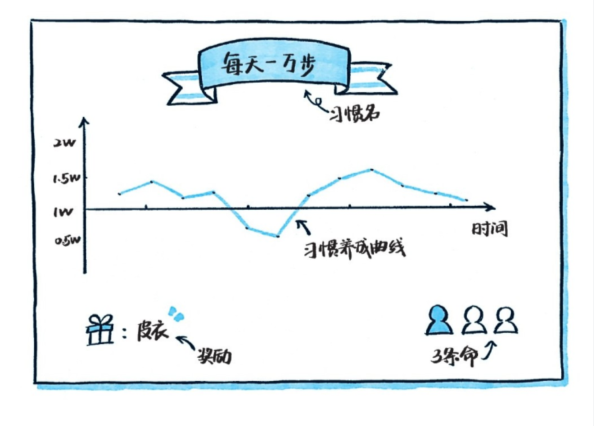 每天一万步
习惯名
2W
1.5W
1W
0.5W
时间
习惯养成曲线
: 皮衣
奖励
3条命